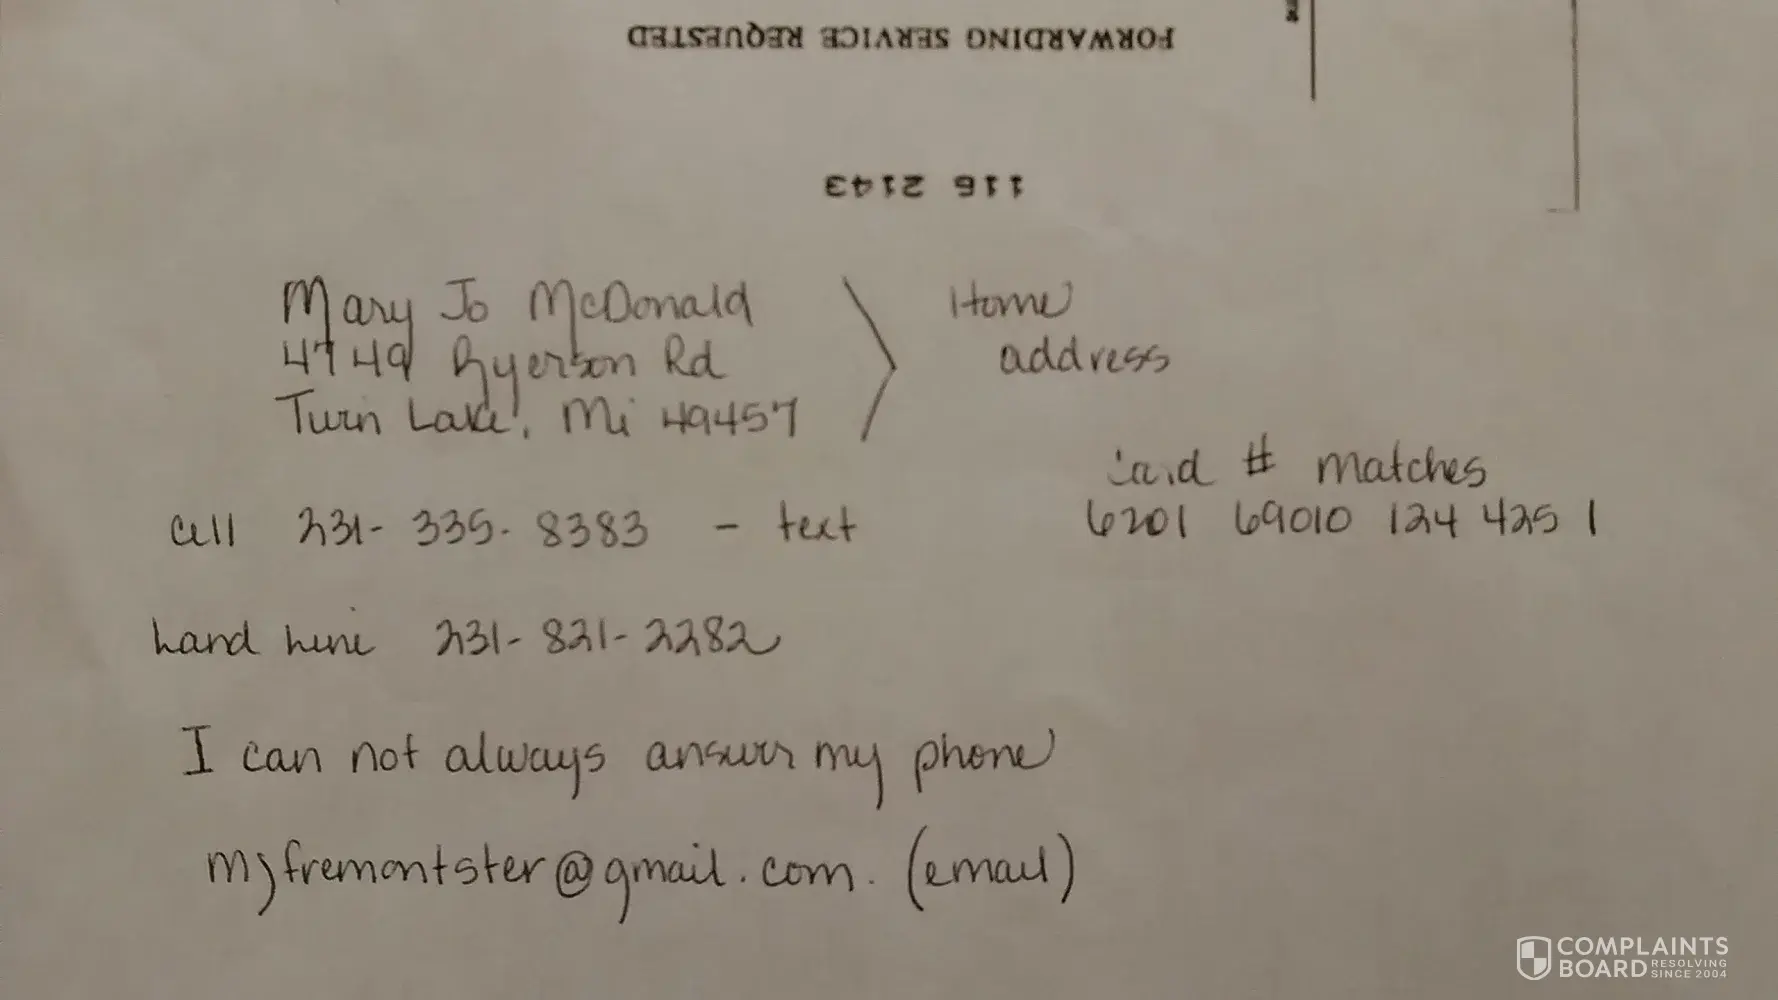 FORWARDING SERVICE REQUESTED
116 2143
Mary Jo McDonald
4749 Ryerson Rd
Twin Lake, Mi 49457
Home
address
Card # matches
6201 69010 124 425 1
cell 231-335-8383 - text
Land line 231-821-2282
I can not always answer my phone
mjfremontster@gmail.com. (email)
COMPLAINTS
BOARD RESOLVING
SINCE 2004